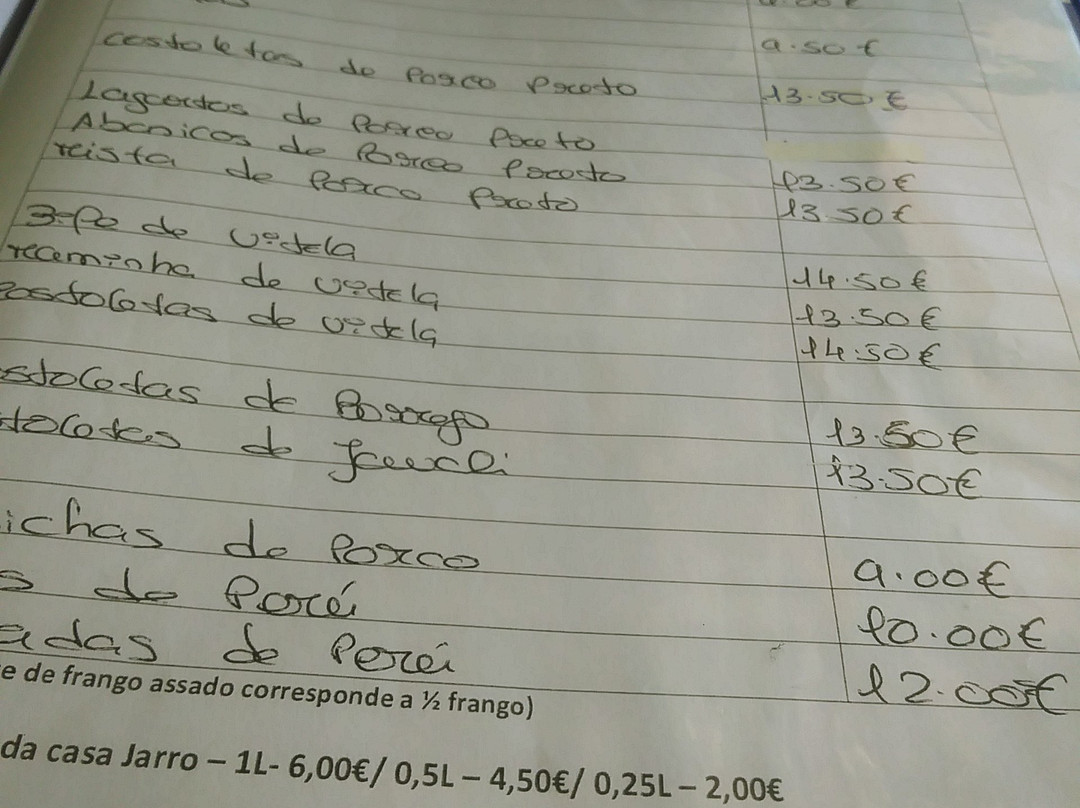 9.50€
costoletas de Porco Preto 13.50€
Lagartos de Porco Preto
Abanicos de Porco Preto 13.50€
reista de Porco Preto 13.50€
de vitela 14.50€
recaminha de vitela 13.50€
Costoletas de vitela 14.50€
stoletas de Borrego 13.50€
toletas de Javali 13.50€
ichas de Porco 9.00€
s de Perú 10.00€
adas de Perú 12.00€
e de frango assado corresponde a ½ frango)
da casa Jarro – 1L- 6,00€/ 0,5L – 4,50€/ 0,25L – 2,00€